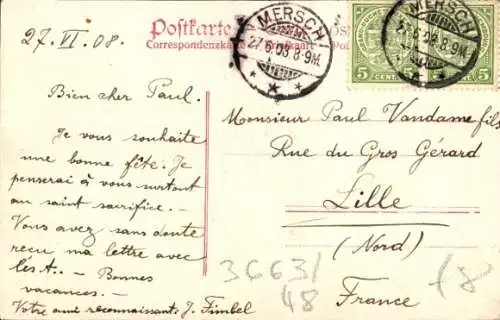 27. VI. 08.
Postkarte
Correspondenzkarte
MERSCH
27.6.08.8-9M.
MERSCH
27.6.08.8-9M.
5 CENTIMES
5
Bien cher Paul.
Je vous souhaite
une bonne fête. Je
penserai à vous surtout
au saint sacrifice. –
Vous avez sans doute
reçu ma lettre avec
les – Bonnes
vacances. –
Votre ami reconnaissant J. Fimbel
Monsieur Paul Vandame fils
Rue du Gros Gérard
Lille
(Nord)
France
3663/
48